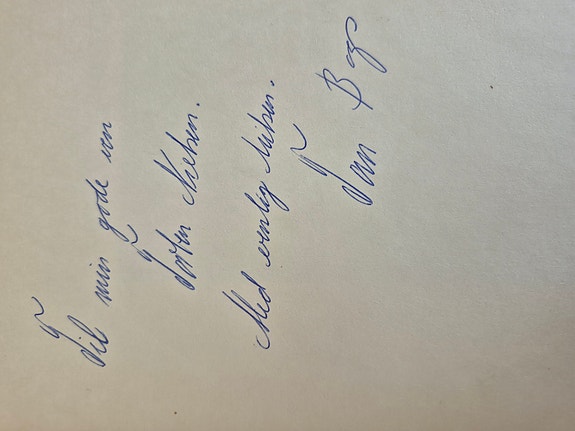 Til min gode ven
Nielsen.
Med venlig hilsen.
Jan